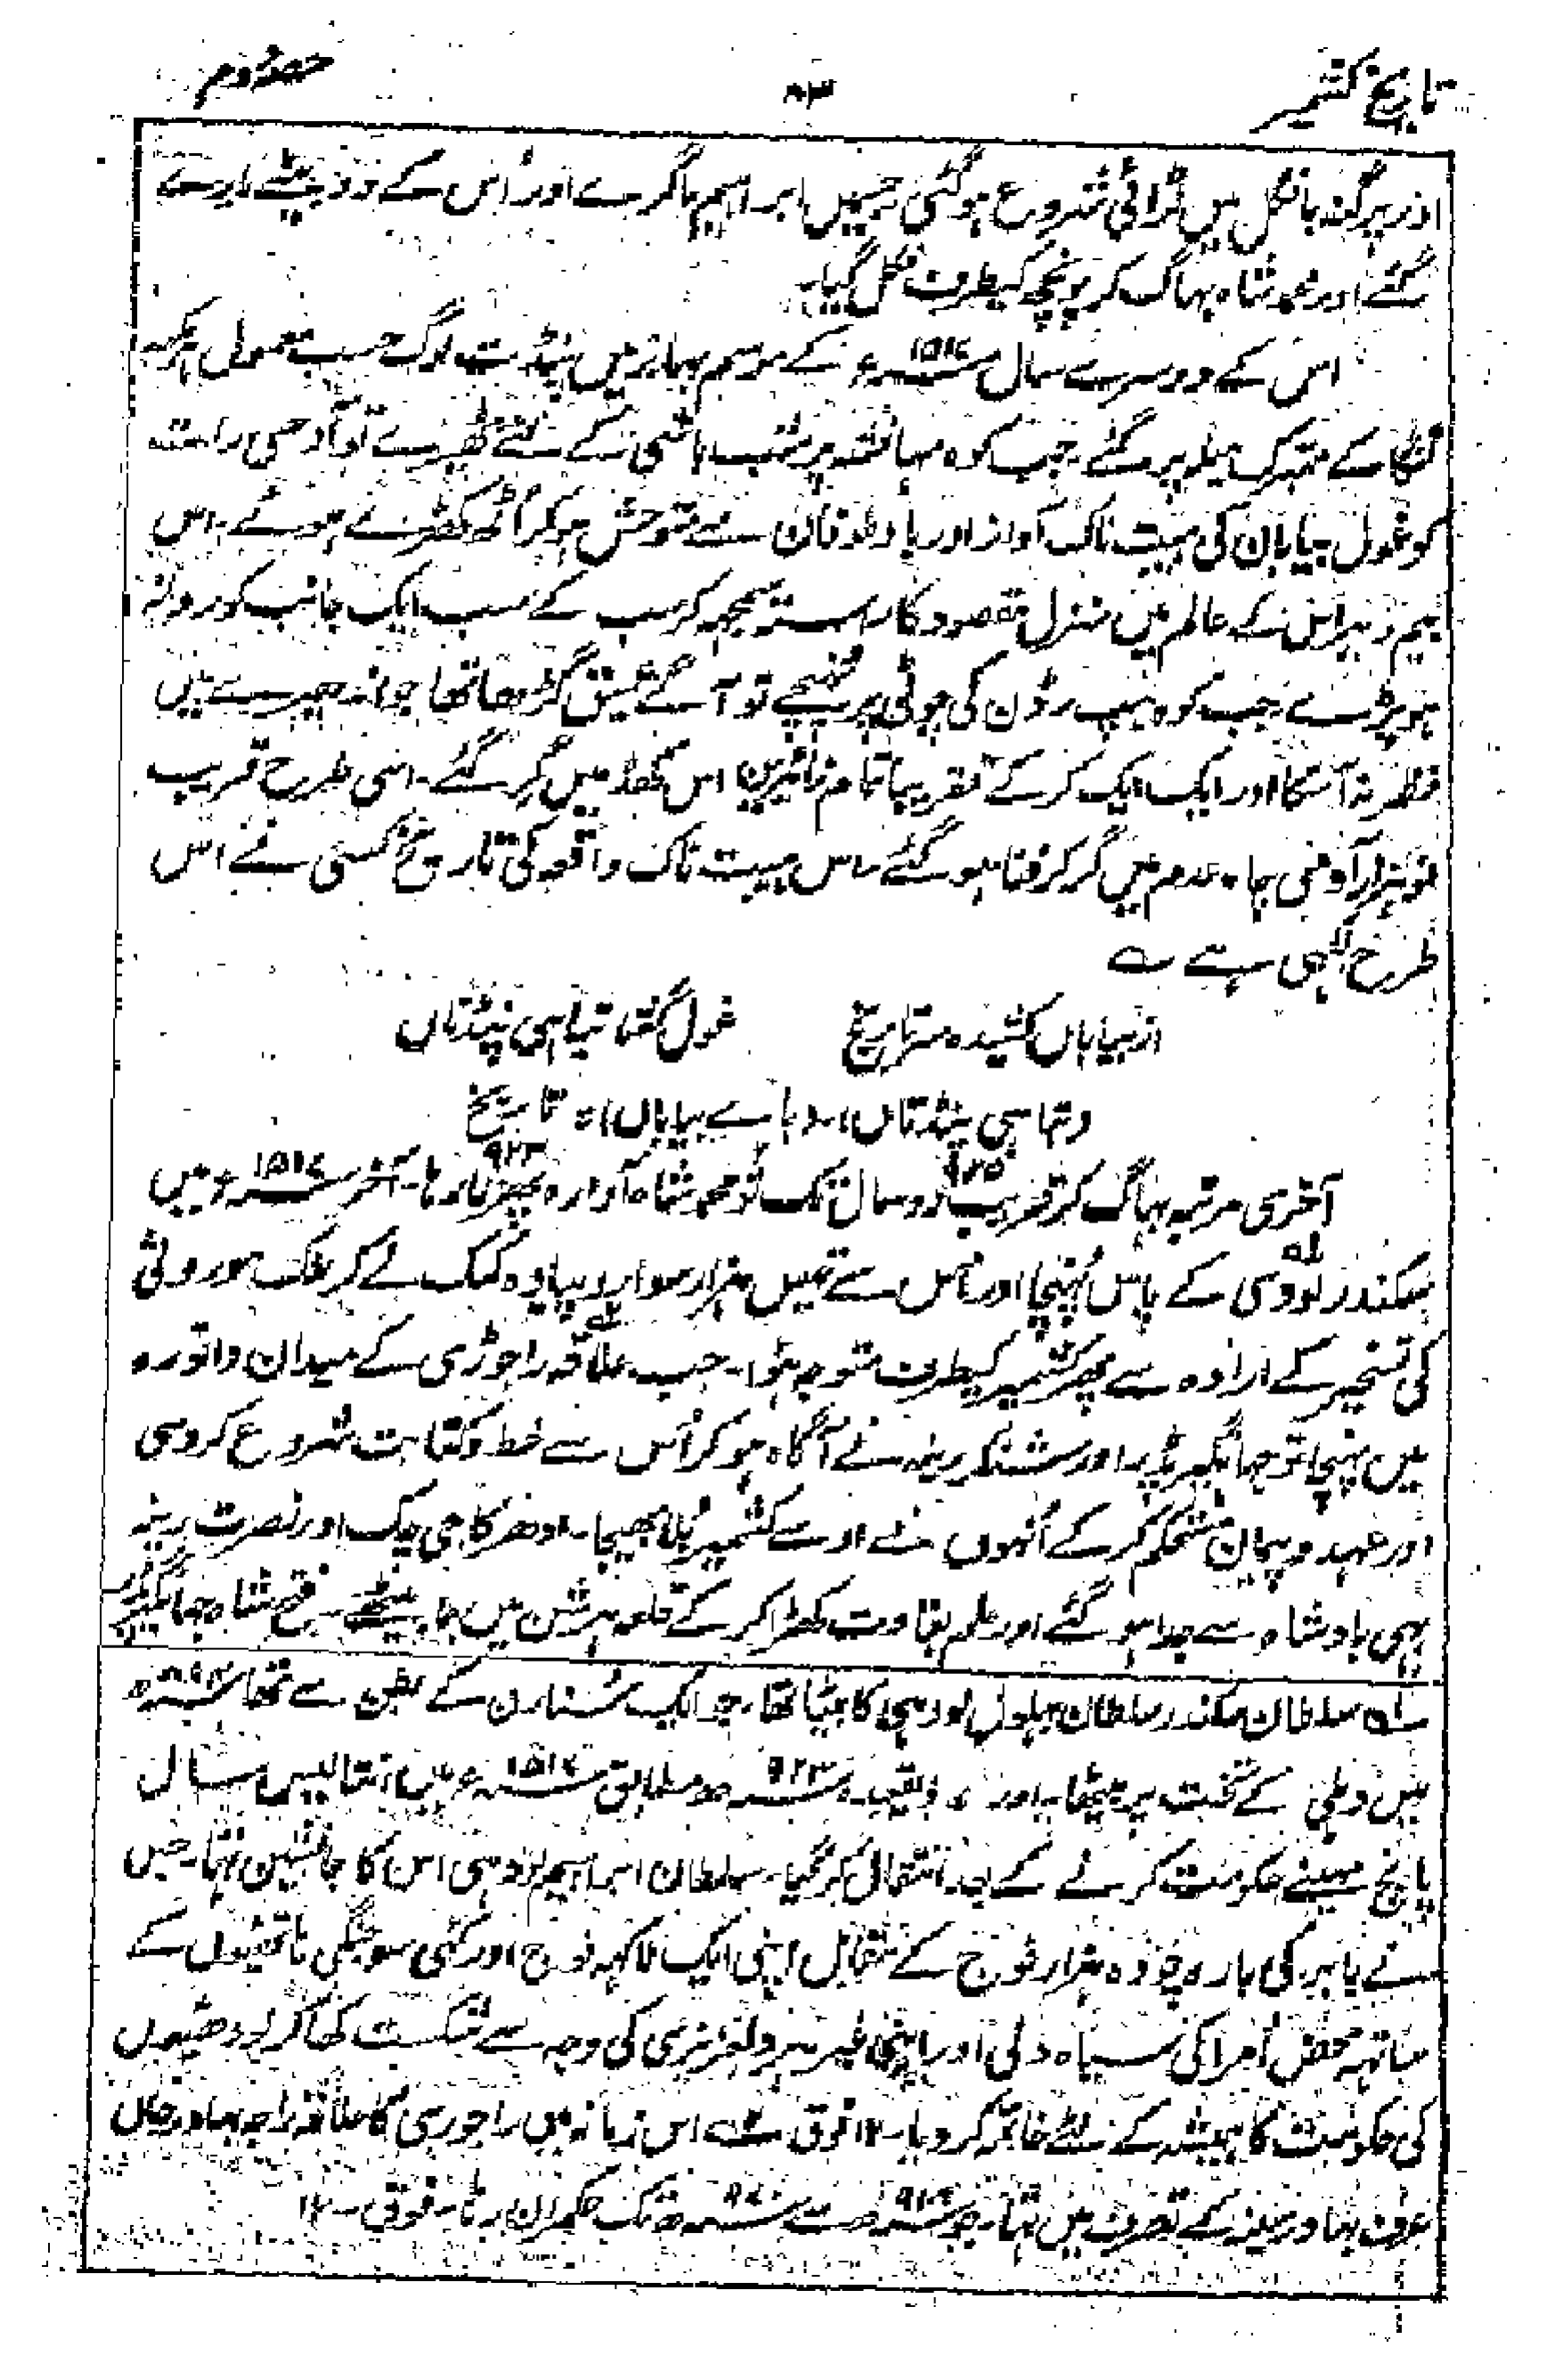 تاریخ کشمیر
۸۳
حصہ دوم
اور پرگنہ بانگل میں لڑائی شروع ہو گئی جسمیں ابراہیم ماگرے اور اُس کے دو بیٹے مارے
گئے اور محمد شاہ بہاگ کر پونچھ کیطرف نکل گیا۔
اس کے دوسرے سال ۱۵۱۷ء کے موسم بہار میں پنڈت لوگ حسب معمول ہرمکہ
گنگا کے متبرک میلہ پر گئے جب کوہ مہانشہ پر شب باشی کے لئے ٹھیرے تو آدھی رات
کو غول بیابان کی ہیبت ناک آواز اور باد طوفان سے متوحش ہو کر اُٹھ کھڑے ہوئے۔ اس
بیم و ہراس کے عالم میں منزل مقصود کا رستہ سمجھ کر سب کے سب ایک جانب کو روانہ
ہو پڑے جب کوہ ہیپ رڈن کی چوٹی پر پہنچے تو آگے عمیق گڑھا تھا جو اندھیرے میں
نظر نہ آسکا اور ایک ایک کر کے تقریباً تمام زائرین اس کھڈ میں گر گئے۔ اسی طرح قریب
نو ہزار آدمی چاہ عدم میں گر کر فنا ہو گئے۔ اس ہیبت ناک واقعہ کی تاریخ کسی نے اس
طرح لکھی ہے ؎
از بیاباں کشیدہ سر تاریخ غول گفتا تباہی پنڈتاں
(تباہی پنڈتاں) - (بائے بیاباں) = تاریخ
۹۲۵ ۹۲۳
آخری مرتبہ بہاگ کر قریب دو سال تک تو محمد شاہ آوارہ پھرتا رہا۔ آخر ۱۵۱۷ء میں
سکندر لودی کے پاس پہنچا اور اس سے تیس ہزار سوار و پیادہ کمک لے کر ملک موروثی
کی تسخیر کے ارادہ سے پھر کشمیر کیطرف متوجہ ہوا۔ جب علاقہ راجوڑی کے میدان دانورہ
میں پہنچا تو جہانگیر پڈر اور شنکر رینہ نے آگاہ ہو کر اُس سے خط و کتابت شروع کر دی
اور عہد و پیمان مستحکم کر کے اُنہوں نے اوسے کشمیر بُلا بھیجا۔ ادھر کاجی چک اور نصرت رینہ
بہی بادشاہ سے جدا ہو گئے اور علم بغاوت کھڑا کر کے قلعہ ہرشن میں جا بیٹھے۔ فتح شاہ جہانگیر پڈر
۱؎ سلطان سکندر سلطان بہلول لودہی کا بیٹا تھا۔ جو ایک سُنارن کے بطن سے تھا ۸۹۴ھ
میں دہلی کے تخت پر بیٹھا۔ اور ۷ ذیقعدہ ۹۲۳ھ مطابق ۱۵۱۷ء میں انتالیس سال
پانچ مہینے حکومت کرنے کے بعد انتقال کر گیا۔ سلطان ابراہیم لودہی اس کا جانشین تہا۔ جس
نے بابر کی بارہ چودہ ہزار فوج کے مقابل اپنی ایک لاکہہ فوج اور کئی سو جنگی ہاتھیوں کے
ساتہہ محض اُمرا کی سیاہ دلی اور اپنی غیر ہردلعزیزی کی وجہ سے شکست کھا کر لودھیوں
کی حکومت کا ہمیشہ کے لئے خاتمہ کر دیا۔ ۱۲ فوق ۲؎ اس زمانہ میں راجوری کا علاقہ راجہ بہادر خاں
عرف بہادر سینہ کے تصرف میں تہا۔ جو ۹۱۴ھ سے ۹۷۰ھ تک حکمران رہا۔ فوق۔ ۱۲